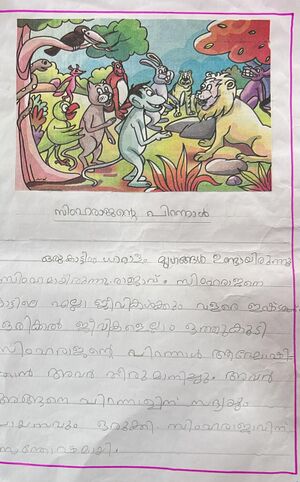 സിംഹരാജന്റെ പിറന്നാൾ
ഒരു കാട്ടിൽ ധാരാളം മൃഗങ്ങൾ ഉണ്ടായിരുന്നു
സിംഹമായിരുന്നു രാജാവ്. സിംഹരാജനെ
കാട്ടിലെ എല്ലാ ജീവികൾക്കും വളരെ ഇഷ്ടമാ
ഒരിക്കൽ ജീവികളെല്ലാം ഒത്തുകൂടി
സിംഹരാജന്റെ പിറന്നാൾ ആഘോഷി
ക്കാൻ അവർ തീരുമാനിച്ചു. അവർ
അങ്ങനെ പിറന്നാളിന് സദ്യക്കും
പായസവും ഒരുക്കി സിംഹരാജാവിന്
സന്തോഷമായി.